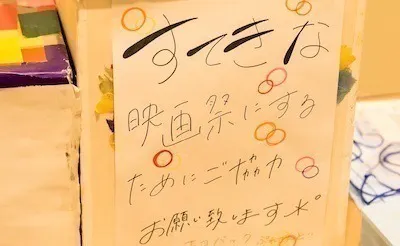 すてきな
映画祭にする
ためにご協力
お願い致します。